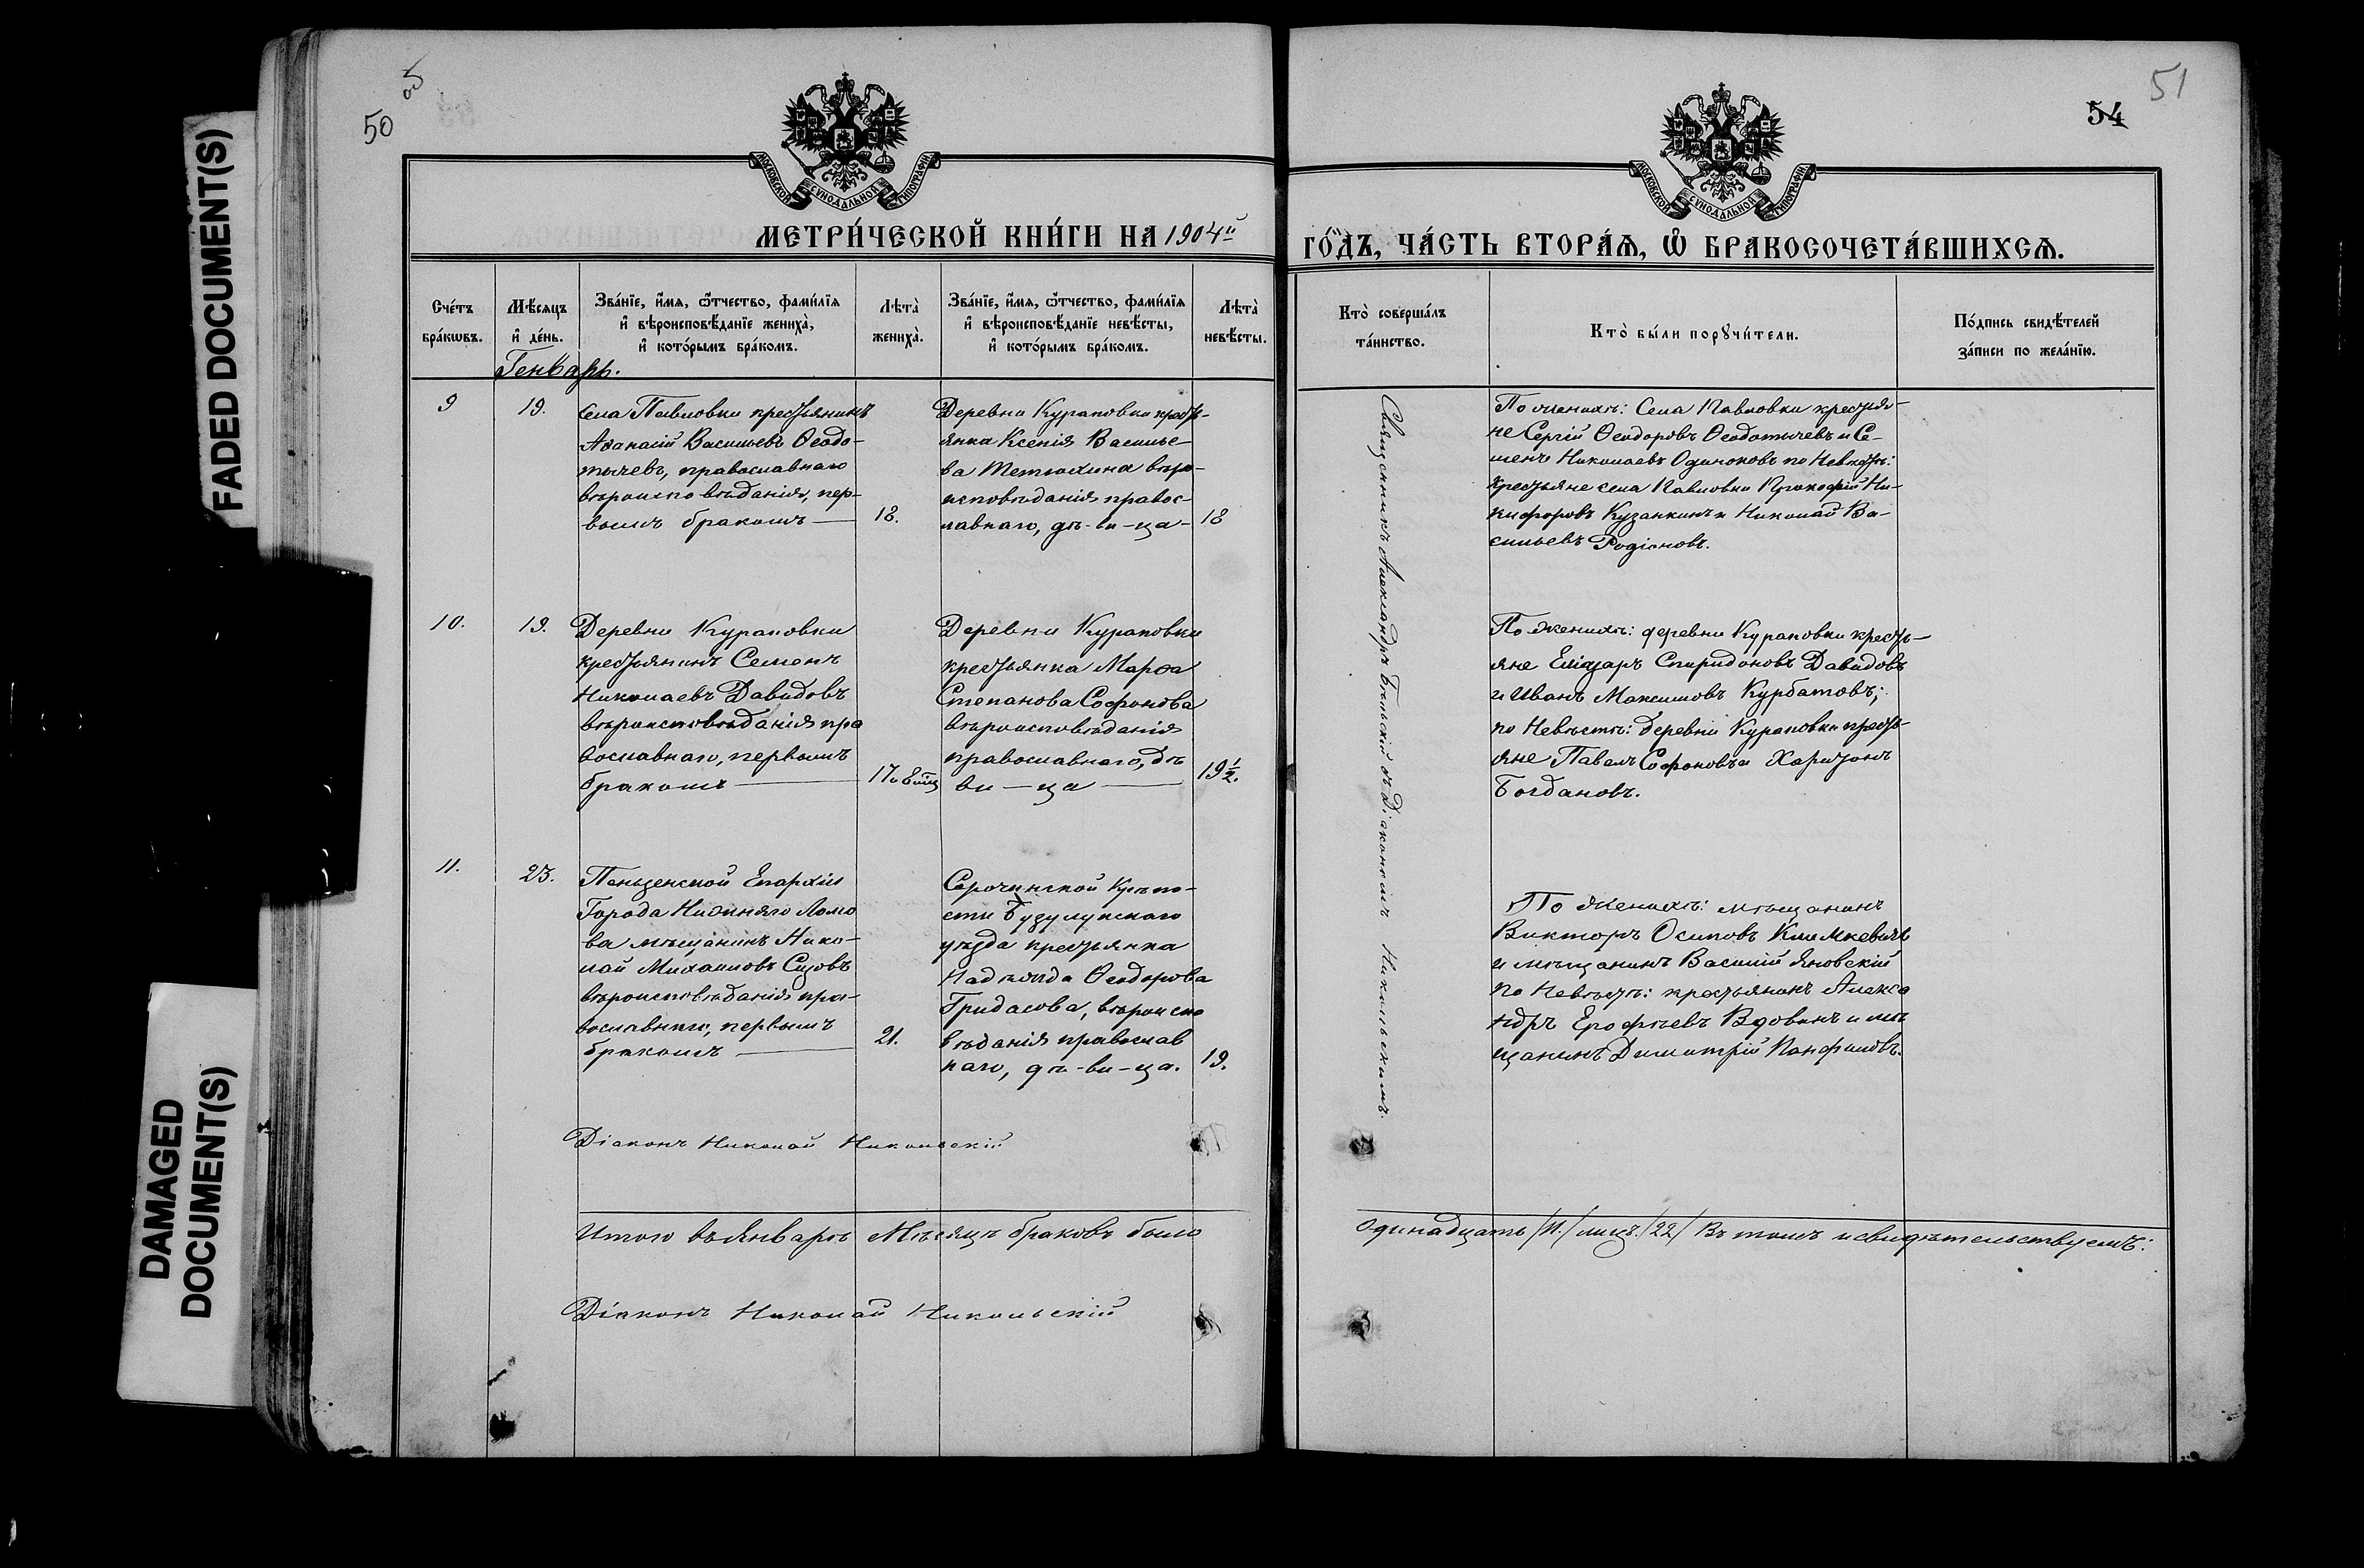 FADED DOCUMENT(S)
DAMAGED
DOCUMENT(S)
50
МОСКОВСКОЙ СУНОДАЛЬНОЙ ТИПОГРАФІИ
МЕТРИ́ЧЕСКОЙ КНИ́ГИ НА 1904й
Сче́тъ бра́кωвъ.
Мѣ́сяцъ и҆ де́нь.
Зва́нїе, и҆́мя, ѻ҆́тчество, фами́лїя
и҆ вѣроисповѣ́данїе жениха̀,
и҆ кото́рымъ бра́комъ.
Лѣта̀ жениха̀.
Зва́нїе, и҆́мя, ѻ҆́тчество, фами́лїя
и҆ вѣроисповѣ́данїе невѣ́сты,
и҆ кото́рымъ бра́комъ.
Лѣта̀ невѣ́сты.
Генварь.
9
19.
Села Павловки крестьянинъ
Аѳанасій Васильевъ Ѳеодо-
тычевъ, православнаго
вѣроисповѣданія, пер-
вымъ бракомъ
18.
Деревни Кураповки кресть-
янка Ксенія Василье-
ва Тетюхина вѣро-
исповѣданія правос-
лавнаго, дѣ-ви-ца-
18
10.
19.
Деревни Кураповки
крестьянинъ Семенъ
Николаевъ Давидовъ
вѣроисповѣданія пра
вославнаго, первымъ
бракомъ
17 и 8 мѣц
Деревни Кураповки
крестьянка Марѳа
Степанова Софонова
вѣроисповѣданія
православнаго, дѣ
ви-ца
19 1/2.
11.
23.
Пензенской Епархіи
Города Нижняго Ломо
ва мѣщанинъ Нико-
лай Михаиловъ Сизовъ
вѣроисповѣданія пра-
вославнаго, первымъ
бракомъ
21.
Сорочинской Крѣпо-
сти Бузулукскаго
уѣзда крестьянка
Надежда Ѳеодорова
Гридасова, вѣроиспо
вѣданія православ
наго, дѣ-ви-ца.
19.
Діаконъ Николай Никольскій
Итого въ Январѣ Мѣсяцѣ браковъ было
Діаконъ Николай Никольскій
51
54
МОСКОВСКОЙ СУНОДАЛЬНОЙ ТИПОГРАФІИ
ГО́ДЪ, ЧА́СТЬ ВТОРА́Ѧ, Ѡ҆ БРАКОСОЧЕТА́ВШИХСѦ.
Кто̀ соверша́лъ
та́инство.
Кто̀ бы́ли порꙋчи́тели.
По́дпись свидѣ́телей
за́писи по жела́нїю.
Священникъ Александръ Бѣльскій съ Діакономъ Никольскимъ.
По женихѣ: Села Павловки крестья-
не Сергій Ѳеодоровъ Ѳеодотычевъ и Се-
менъ Николаевъ Одиноковъ по Невѣстѣ:
крестьяне села Павловки Прокофій Ни-
кифоровъ Кузанкинъ и Николай Ва-
сильевъ Родіоновъ.
По Женихѣ: деревни Кураповки кресть-
яне Еліазаръ Спиридоновъ Давидовъ
и Иванъ Максимовъ Курбатовъ;
по Невѣстѣ: деревни Кураповки кресть-
яне Павелъ Софоновъ и Харитонъ
Богдановъ.
По Женихѣ: мѣщанинъ
Викторъ Осиповъ Климкевичъ
и мѣщанинъ Василій Яновскій
по Невѣстѣ: крестьянинъ Алекса
ндръ Ерофѣевъ Вдовинъ и мѣ
щанинъ Димитрій Панфиловъ.
одинадцать /11./ лицъ. /22/ Въ томъ и свидѣтельствуемъ: